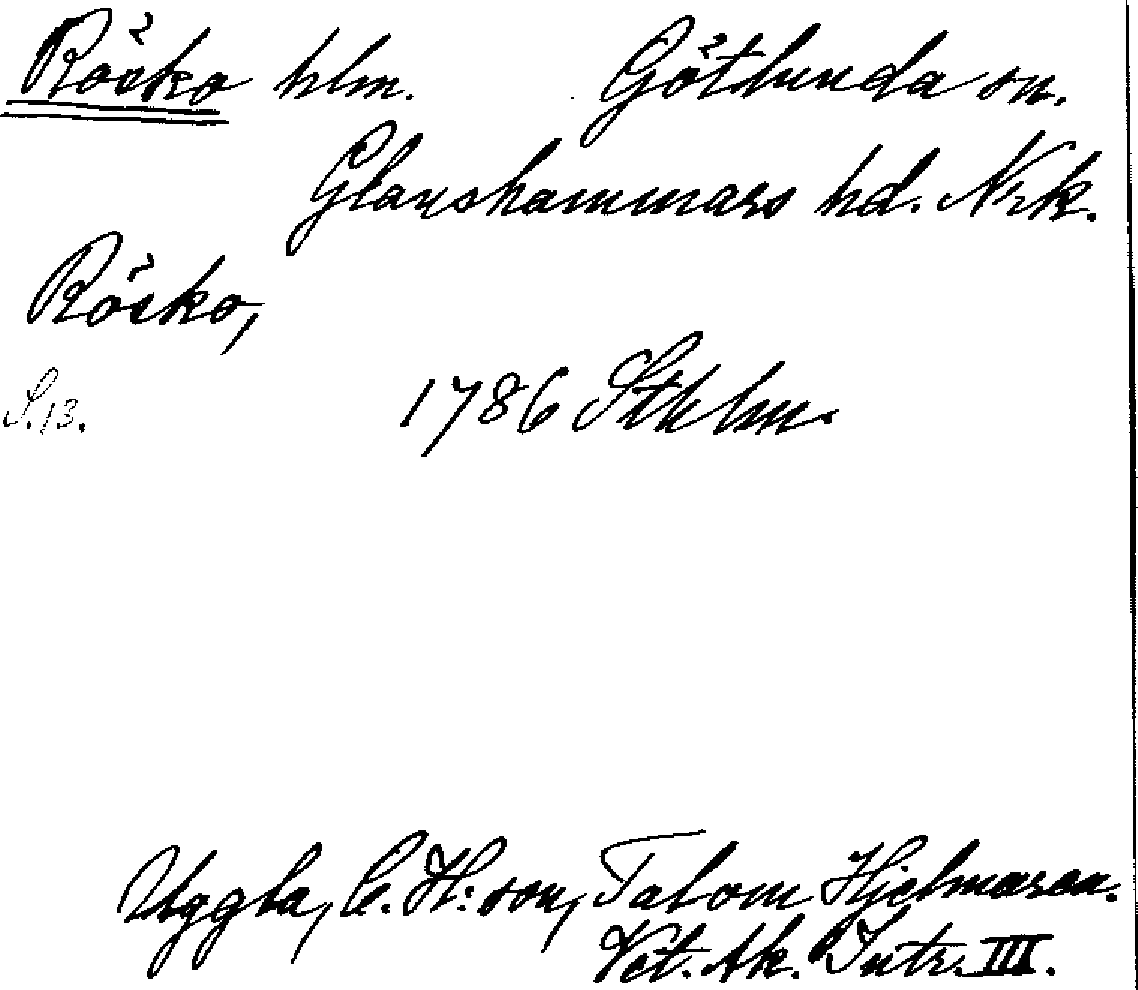 Rösko hlm. Götlunda sn.
Glanshammars hd. Nrk.
Rösko,
S.13. 1786 Sthlm.
Uggla, C. H:son, Tal om Hjelmaren.
Vet. Ak. Intr. III.